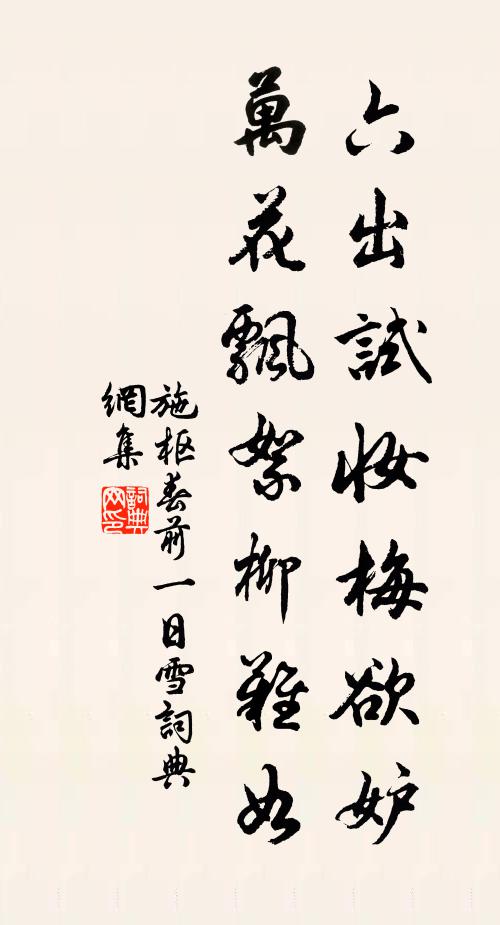 六出試妝梅欲妒
萬花飄絮柳難如
施枢春前一日雪詞典
網集
詞典网印